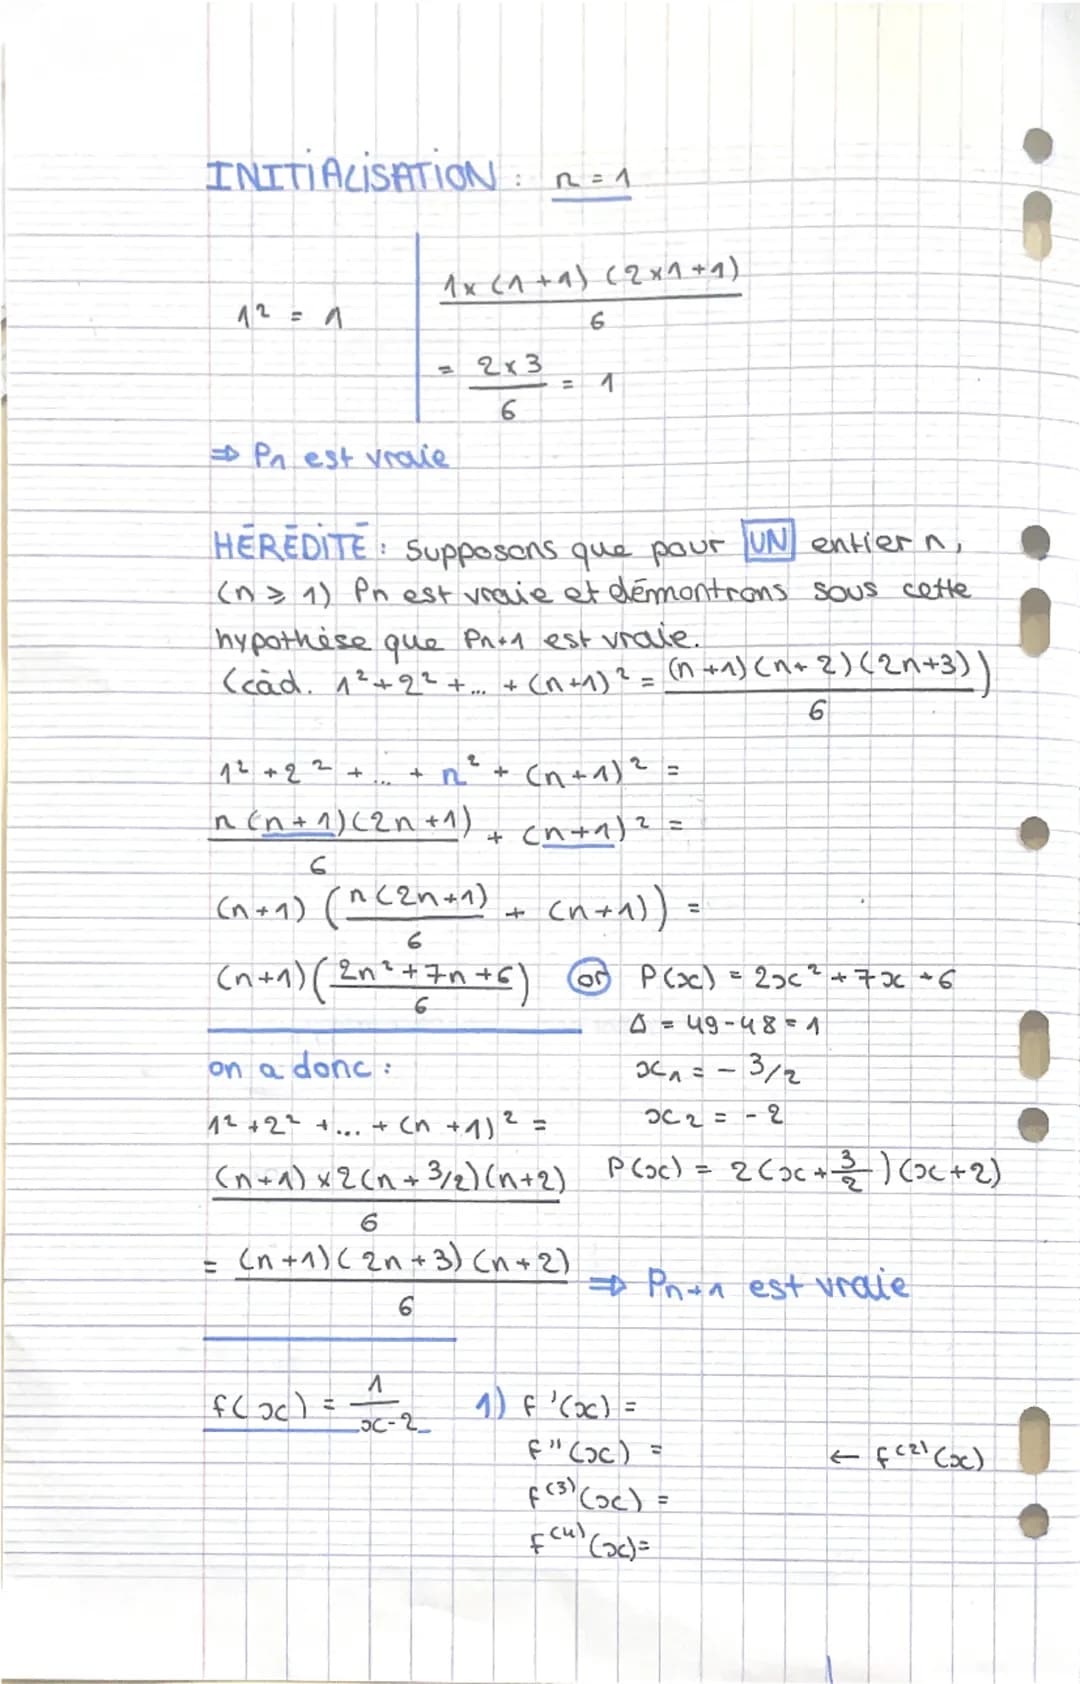 INITIALISATION : n = 1
1² = 1
1x (1+1) (2x1+1)
6
= 2x3 = 1
6
⇒ P1 est vraie
HÉRÉDITÉ : Supposons que pour UN entier n,
(n ≥ 1) Pn est vraie et démontrons sous cette
hypothèse que Pn+1 est vraie.
(càd. 1² + 2² + ... + (n+1)² = (n+1)(n+2)(2n+3))
6
1² + 2² + ... + n² + (n+1)² =
n(n+1)(2n+1) + (n+1)² =
6
(n+1) (n(2n+1) + (n+1)) =
6
(n+1)(2n²+7n+6) or P(x) = 2x² + 7x + 6
6
Δ = 49-48 = 1
on a donc :
x1 = - 3/2
1² + 2² + ... + (n+1)² =
x2 = - 2
(n+1) x2(n+3/2)(n+2)
6
P(x) = 2(x+3/2)(x+2)
= (n+1)(2n+3)(n+2)
6
⇒ Pn+1 est vraie
f(x) = 1
x-2
1) f'(x) =
f''(x) = ← f(2)(x)
f(3)(x) =
f(4)(x)=